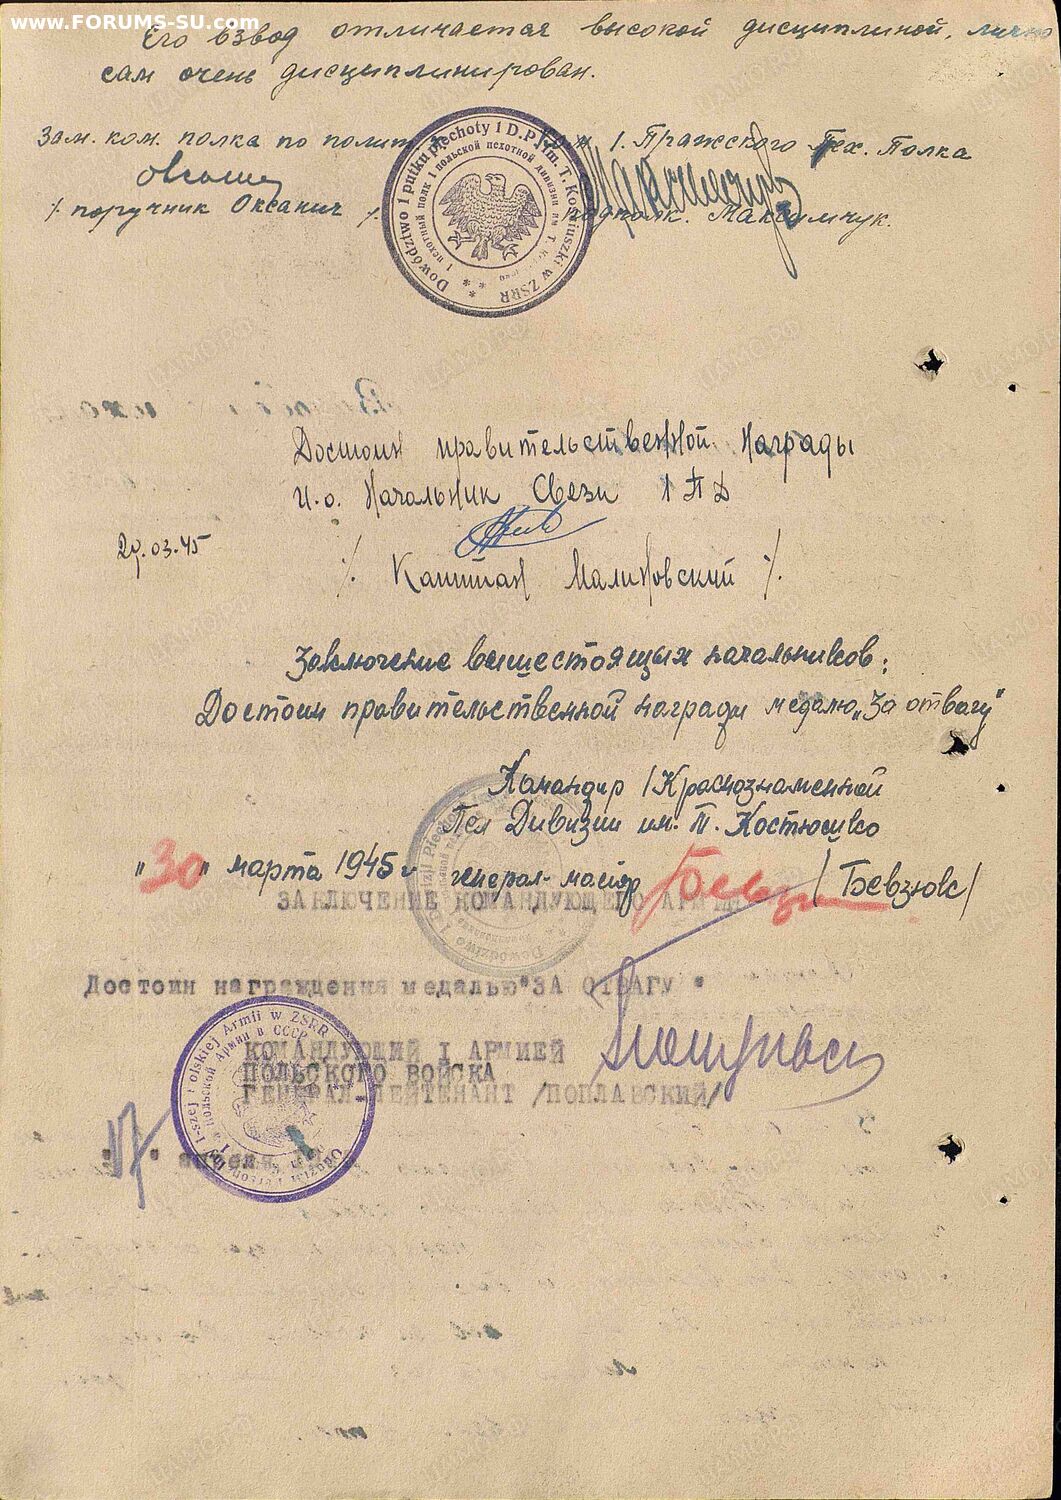 www.FORUMS-SU.com
Его взвод отличается высокой дисциплиной, лично
сам очень дисциплинирован.
Зам. ком. полка по полит
Ком 1. Пражского Пех. Полка
/. поручник Оксанич /.
подполк. Максимчук.
Dowództwo 1 pułku piechoty 1 D.P. im. T. Kościuszki w ZSRR
1 пехотный полк 1 польской пехотной дивизии им Т.
Достоин правительственной награды
И.о. Начальник Связи 1 ПД
29.03.45
/. Капитан Малиновский /.
Заключение вышестоящих начальников:
Достоин правительственной награды медалью „За отвагу"
Командир 1 Краснознаменной
Пех Дивизии им. Т. Костюшко
"30" марта 1945 г генерал-майор / Бевзюк /
ЗАКЛЮЧЕНИЕ КОМАНДУЮЩЕГО АРМИИ
Достоин награждения медалью "ЗА ОТВАГУ"
КОМАНДУЮЩИЙ I АРМИЕЙ
ПОЛЬСКОГО ВОЙСКА
ГЕНЕРАЛ-ЛЕЙТЕНАНТ /ПОПЛАВСКИЙ/
"17" апреля